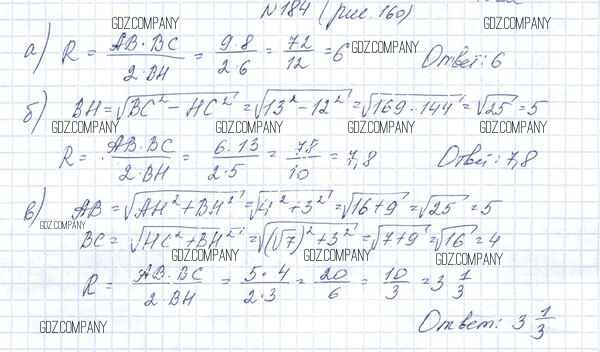 N 184 (рис. 160)
GDZ.COMPANY GDZ.COMPANY
а) R = AB·BC / 2·BH = 9·8 / 2·6 = 72 / 12 = 6 GDZ.COMPANY Ответ: 6
б) BH = √BC² − HC² = √13² − 12² = √169 - 144 = √25 = 5
GDZ.COMPANY GDZ.COMPANY GDZ.COMPANY GDZ.COMPANY
R = AB·BC / 2·BH = 6·13 / 2·5 = 78 / 10 = 7,8 Ответ: 7,8
в) AB = √AH² + BH² = √4² + 3² = √16 + 9 = √25 = 5
GDZ.COMPANY
BC = √HC² + BH² = √(√7)² + 3² = √7 + 9 = √16 = 4
GDZ.COMPANY GDZ.COMPANY GDZ.COMPANY
R = AB·BC / 2·BH = 5·4 / 2·3 = 20 / 6 = 10 / 3 = 3 1/3
GDZ.COMPANY
Ответ: 3 1/3